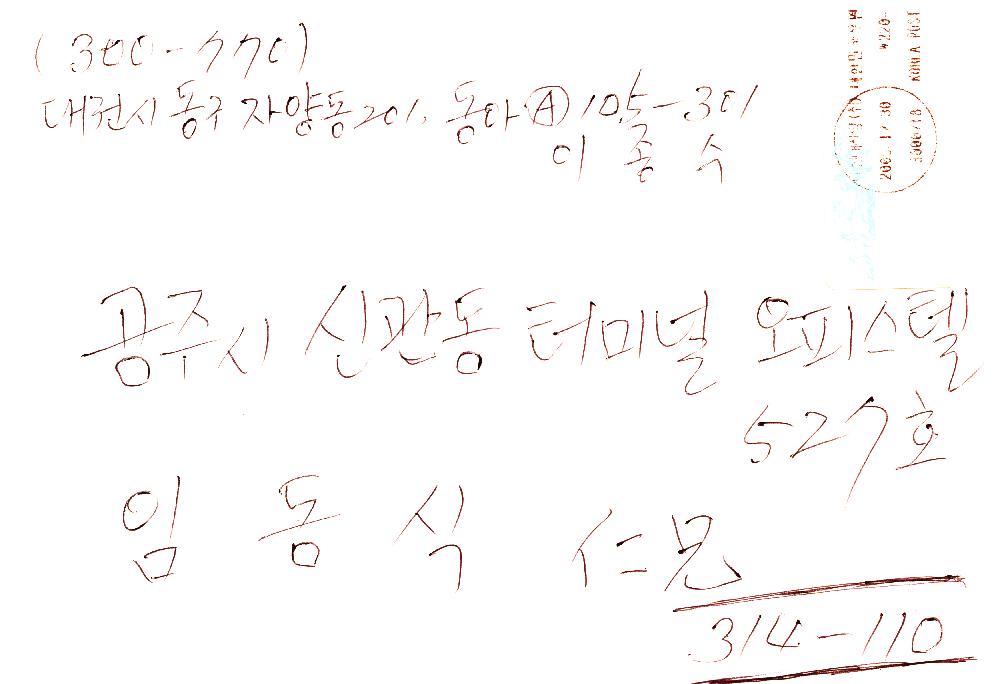 (300-770)
대전시 동구 자양동 201. 동아 Ⓐ 105-301
이 종 수
공주시 신관동 터미널 오피스텔
527호
임 동 식 仁兄
314-110
₩220-
KOREA POST